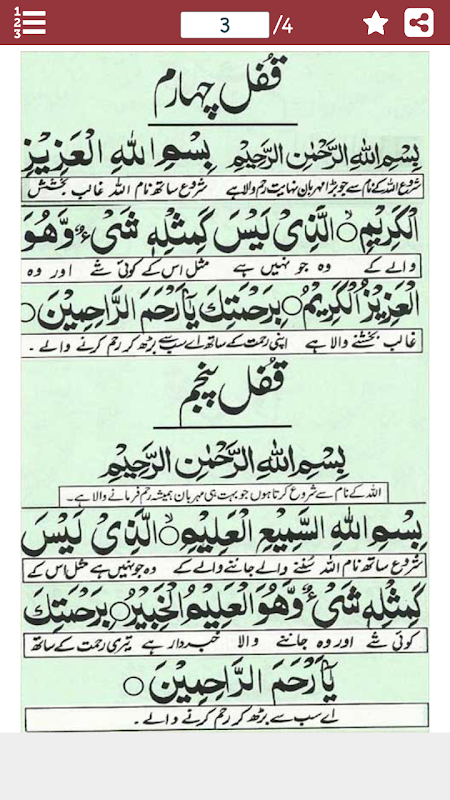 3 /4
قفل چہارم
بِسْمِ اللهِ الرَّحْمٰنِ الرَّحِيْمِ بِسْمِ اللهِ الْعَزِيْزِ
شروع اللہ کے نام سے جو بڑا مہربان نہایت رحم والا ہے شروع ساتھ نام اللہ غالب بخشش
الْكَرِيْمِ ○ الَّذِىْ لَيْسَ كَمِثْلِهٖ شَىْءٌ وَّهُوَ
والے کے وہ جو نہیں ہے مثل اس کے کوئی شے اور وہ
الْعَزِيْزُ الْكَرِيْمُ ○ بِرَحْمَتِكَ يَآ اَرْحَمَ الرَّاحِمِيْنَ ○
غالب بخشنے والا ہے اپنی رحمت کے ساتھ اے سب سے بڑھ کر رحم کرنے والے ۔
قفل پنجم
بِسْمِ اللهِ الرَّحْمٰنِ الرَّحِيْمِ
اللہ کے نام سے شروع کرتا ہوں جو بہت ہی مہربان ہمیشہ رحم فرمانے والا ہے ۔
بِسْمِ اللهِ السَّمِيْعِ الْعَلِيْمِ ○ الَّذِىْ لَيْسَ
شروع ساتھ نام اللہ سننے والے جاننے والے کے وہ جو نہیں ہے مثل اس کے
كَمِثْلِهٖ شَىْءٌ وَّهُوَ الْعَلِيْمُ الْخَبِيْرُ ○ بِرَحْمَتِكَ
کوئی شے اور وہ جاننے والا خبردار ہے تیری رحمت کے ساتھ
يَآ اَرْحَمَ الرَّاحِمِيْنَ ○
اے سب سے بڑھ کر رحم کرنے والے ۔